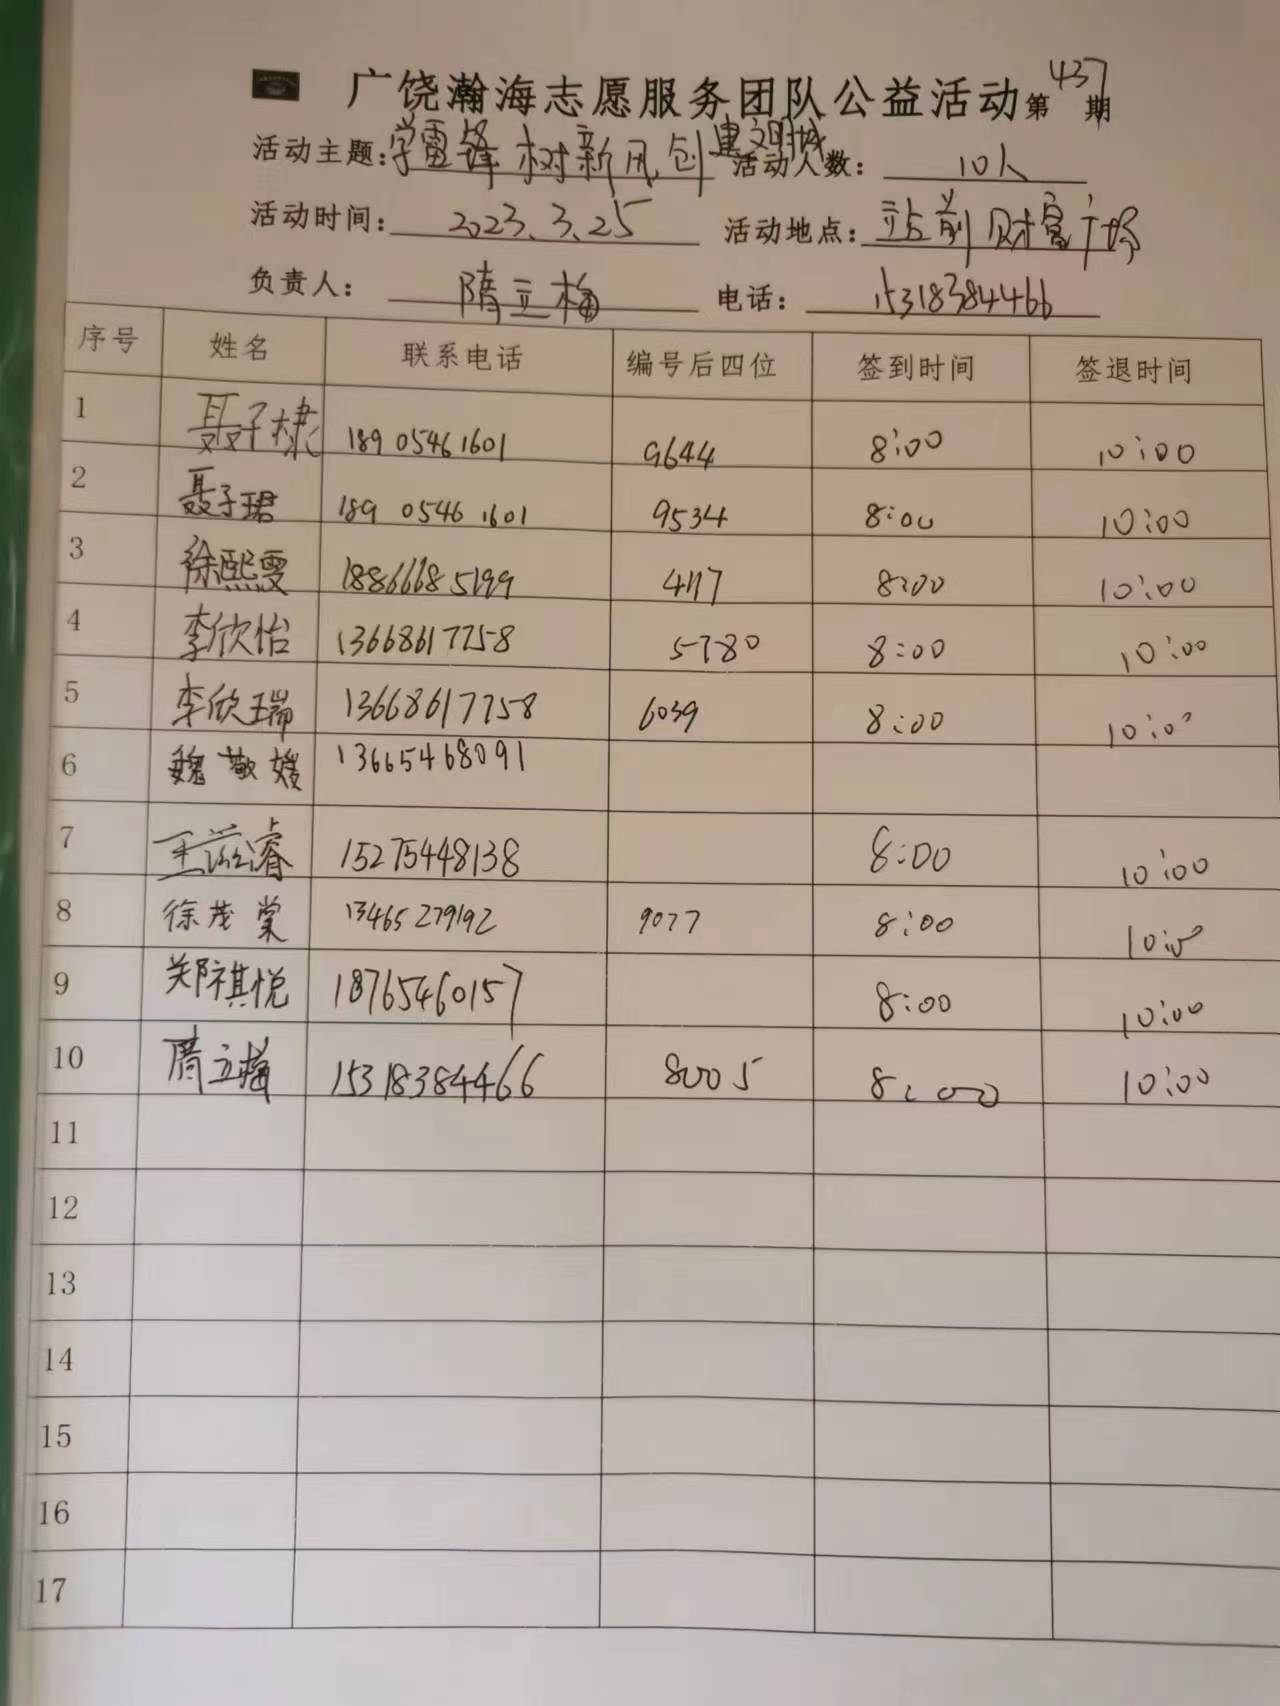 广饶瀚海志愿服务团队公益活动第437期
活动主题:学雷锋 树新风 创建文明城 活动人数: 10人
活动时间: 2023.3.25 活动地点: 站前财富广场
负责人: 隋立梅 电话: 15318384466
序号 姓名 联系电话 编号后四位 签到时间 签退时间
1 聂子棣 18905461601 9644 8:00 10:00
2 聂子珺 189 0546 1601 9534 8:00 10:00
3 徐熙雯 18866685199 4117 8:00 10:00
4 李欣怡 13668617758 5780 8:00 10:00
5 李欣瑞 13668617758 6039 8:00 10:00
6 魏敬媛 13665468091
7 王滋睿 15275448138 8:00 10:00
8 徐茂棠 13465279192 9077 8:00 10:00
9 郑祺悦 18765460157 8:00 10:00
10 隋立梅 15318384466 8005 8:00 10:00
11
12
13
14
15
16
17